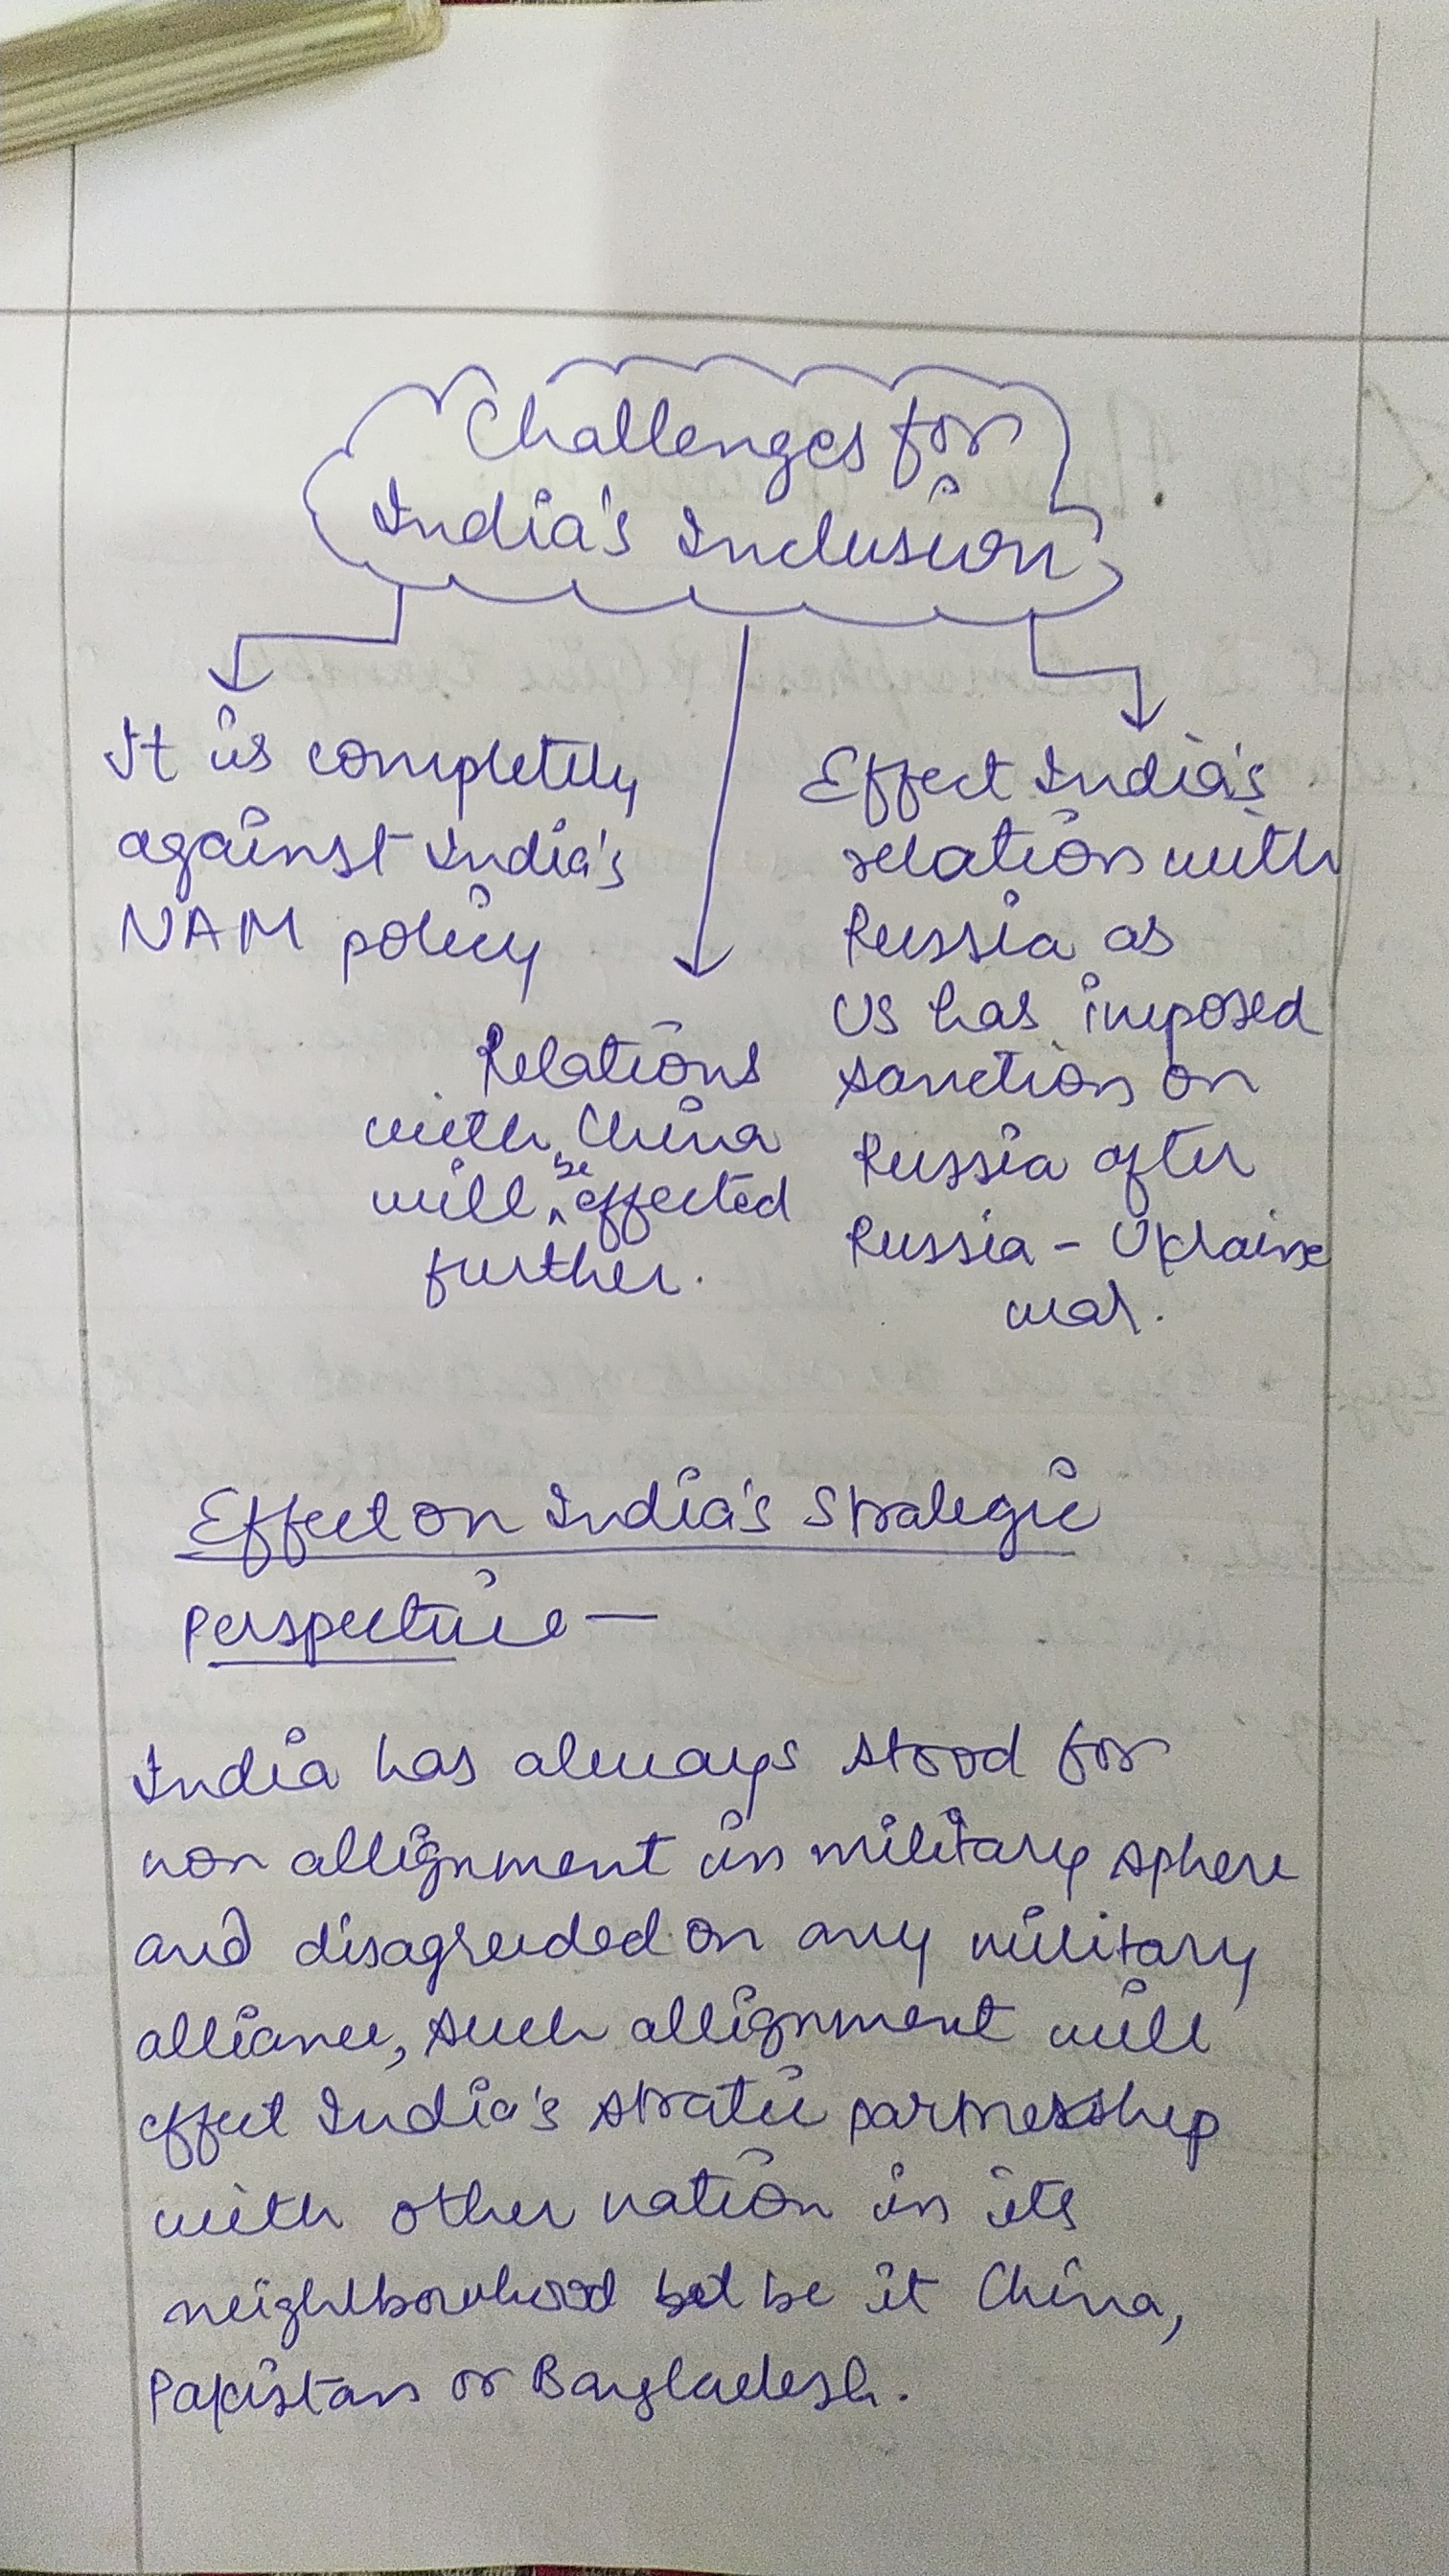 Challenges for
India's Inclusion
It is completely
against India's
NAM policy
Relations
with China
will be effected
further.
Effect India's
relation with
Russia as
US has imposed
sanction on
Russia after
Russia - Ukraine
war.
Effect on India's Strategic
Perspective —
India has always stood for
non allignment in military sphere
and disagreeded on any military
alliance, such allignment will
effect India's stratic partnership
with other nation in its
neighbourhood be it China,
Pakistan or Bangladesh.